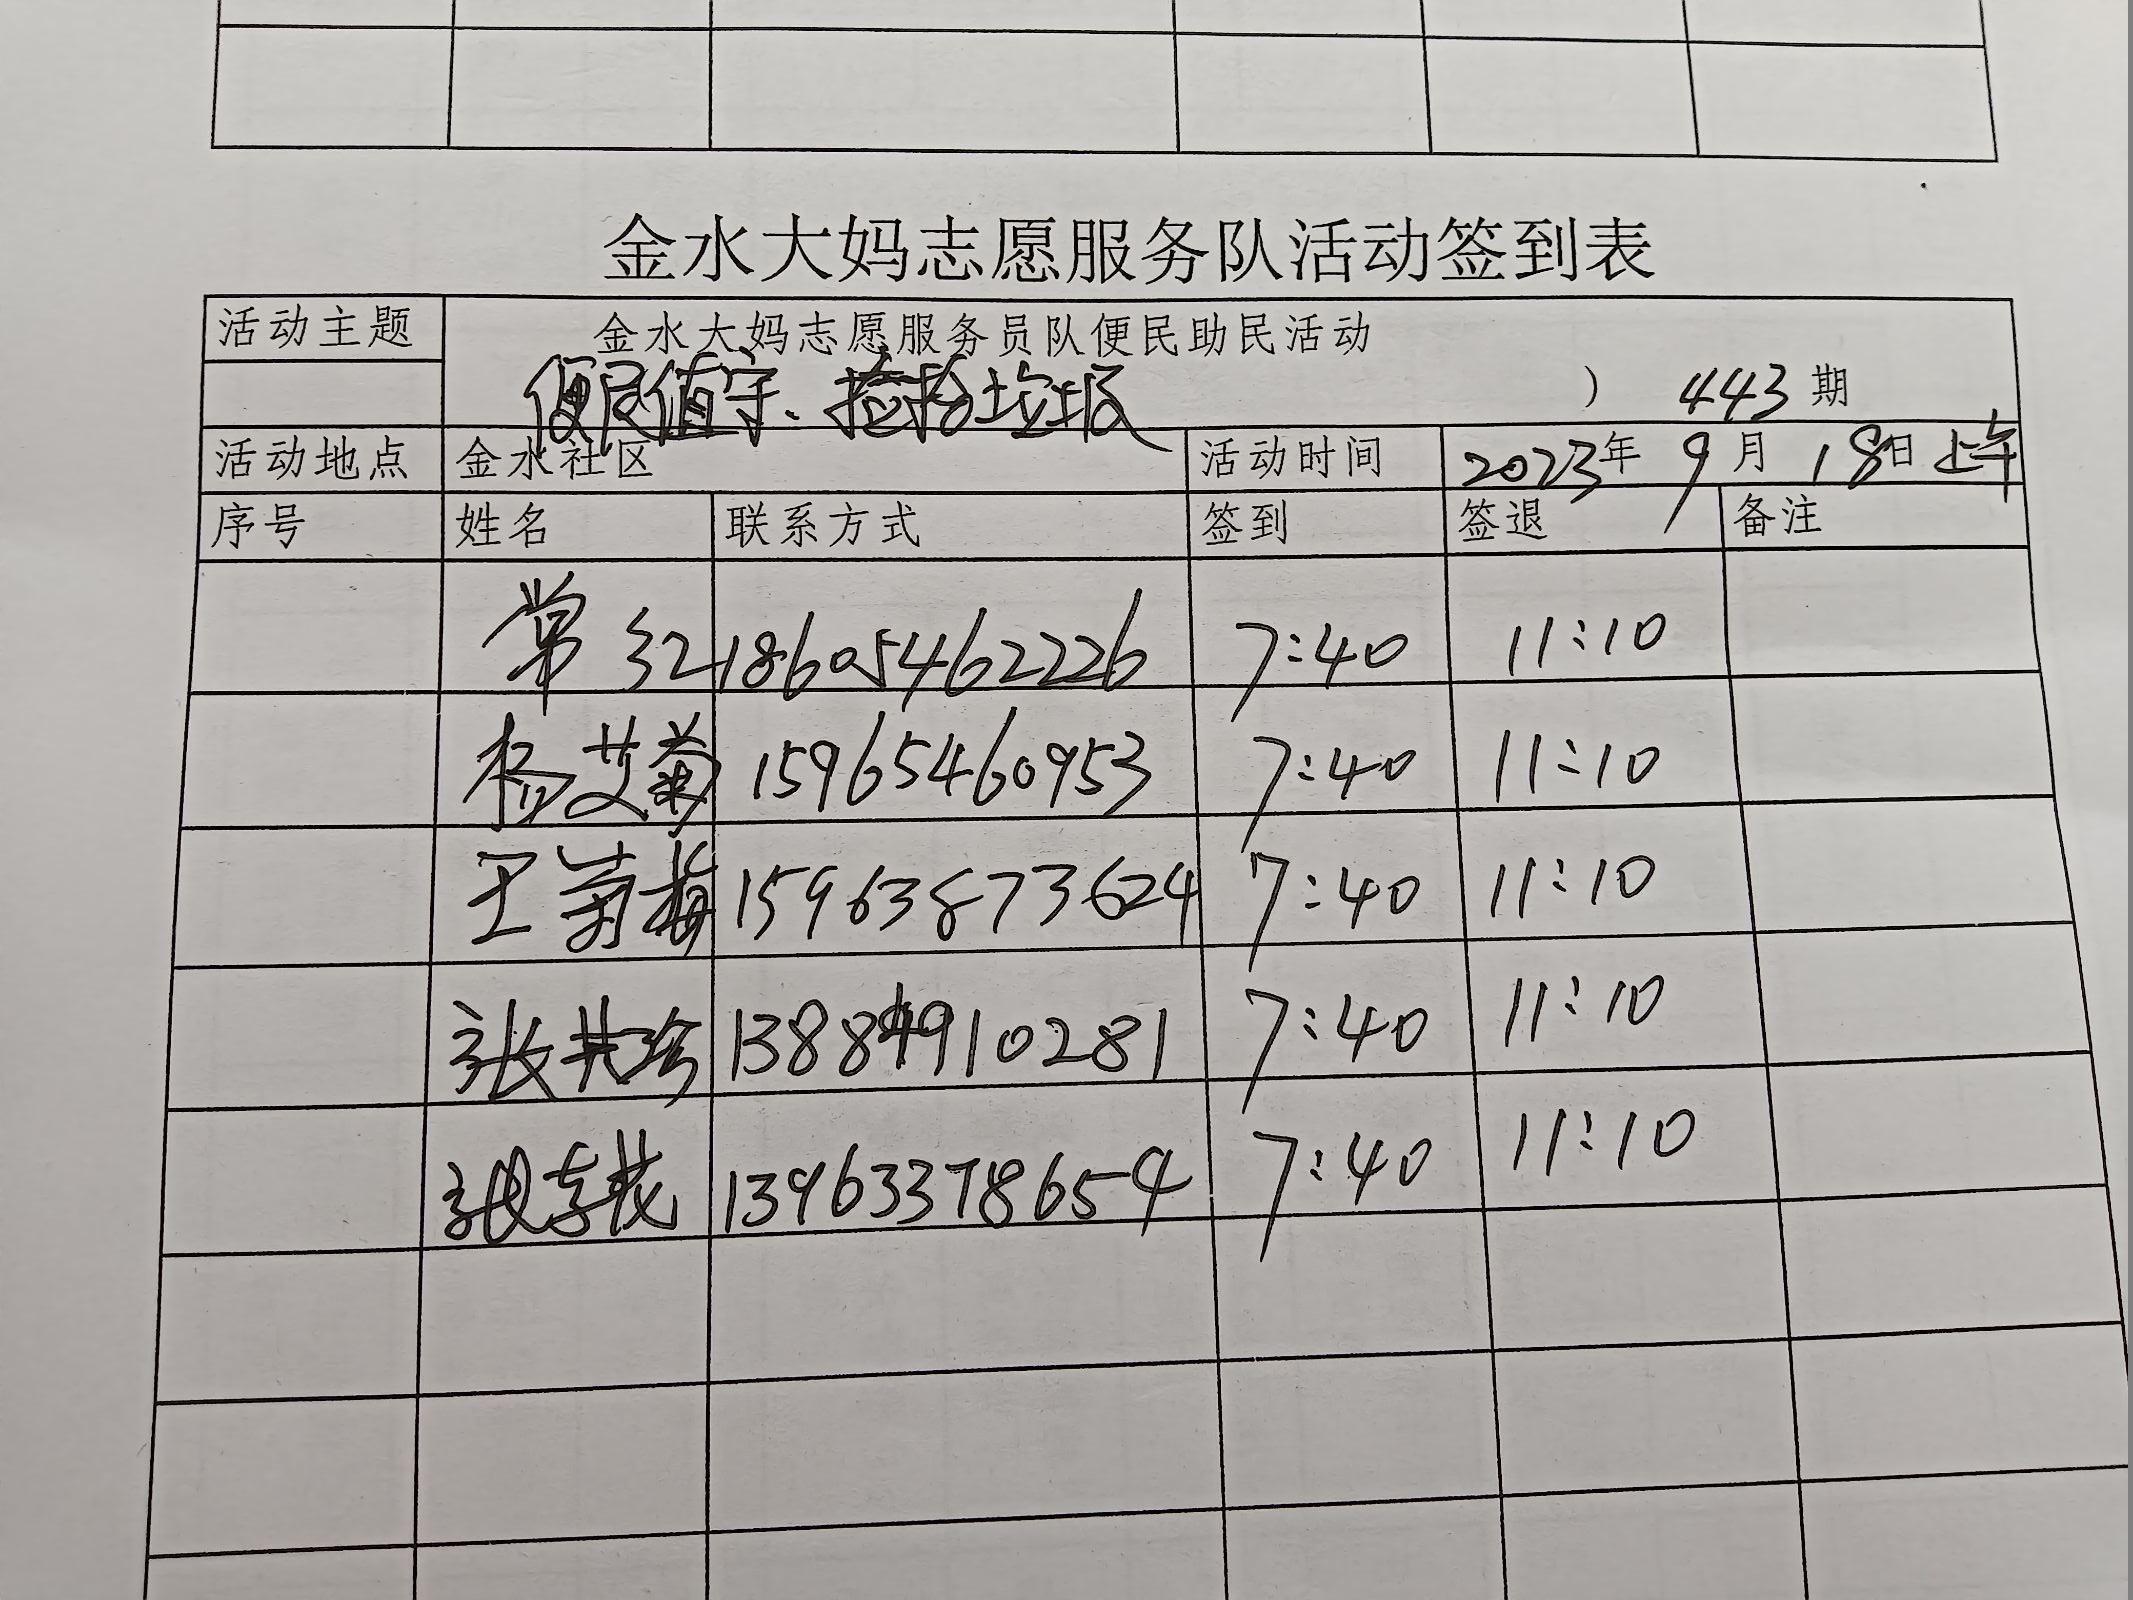 金水大妈志愿服务队活动签到表
活动主题 金水大妈志愿服务员队便民助民活动
便民值守、捡拾垃圾 ） 443期
活动地点 金水社区 活动时间 2023年9月18日上午
序号 姓名 联系方式 签到 签退 备注
常红 18605462226 7:40 11:10
杨艾菊 15965460953 7:40 11:10
王菊梅 15963873624 7:40 11:10
张共珍 7:40 11:10
张 13963378654 7:40 11:10